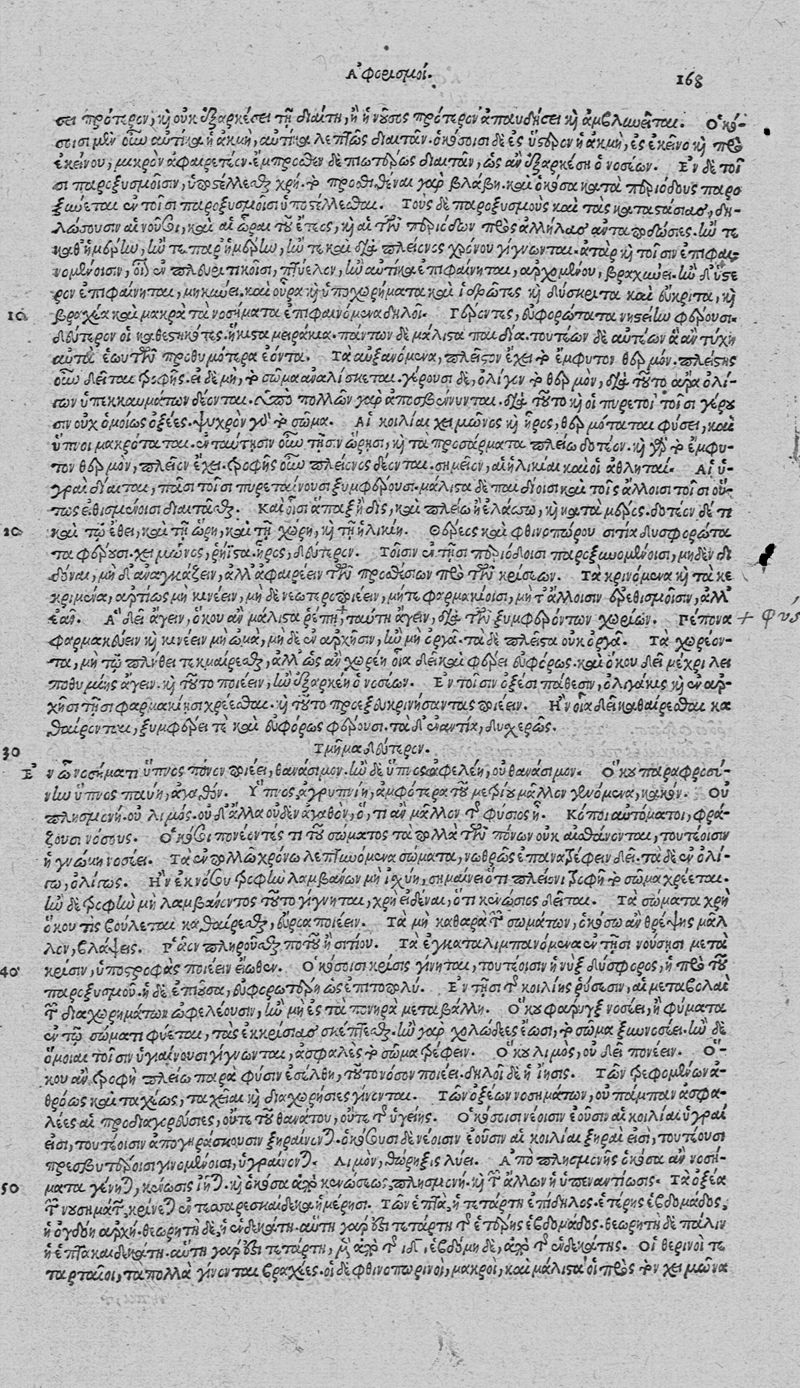 Ἀφορισμοί. 168
σει πρότερον, καὶ οὐκ ἐξαρκέσει τῇ διαίτῃ, ἢ ἡ νοῦσος πρότερον ἀπαυδήσει καὶ ἀμβλυνεῖται. Ὁκό-
σοισι μὲν οὖν αὐτίκα ἡ ἀκμὴ, αὐτίκα λεπτῶς διαιτᾶν. ὁκόσοισι δὲ ἐς ὕστερον ἡ ἀκμὴ, ἐς ἐκεῖνο καὶ πρὸ
ἐκείνου, μικρὸν ἀφαιρετέον. ἔμπροσθεν δὲ πιωτέρως διαιτᾶν, ὡς ἂν ἐξαρκέσῃ ὁ νοσέων. Ἐν δὲ τοῖ
σι παροξυσμοῖσιν, ὑποστέλλεσθαι χρή. τὸ προστιθέναι γὰρ βλάβη. καὶ ὁκόσα κατὰ περιόδους παρο
ξύνεται ἐν τοῖσι παροξυσμοῖσι ὑποστέλλεσθαι. Τοὺς δὲ παροξυσμοὺς καὶ τὰς καταστάσιας, δη-
λώσουσιν αἱ νοῦσοι, καὶ αἱ ὧραι τοῦ ἔτεος, καὶ αἱ τῶν περιόδων πρὸς ἀλλήλας ἀνταποδόσιες. ἤν τε
καθ' ἡμέρην, ἤν τε παρ' ἡμέρην, ἤν τε καὶ διὰ πλείονος χρόνου γίγνωνται. ἀτὰρ καὶ τοῖσιν ἐπιφαι-
νομένοισιν, οἷον ἐν πλευριτικοῖσι, πτύελον, ἢν αὐτίκα ἐπιφαίνηται, ἀρχομένου, βραχύνει. ἢν δ' ὕστε
ρον ἐπιφαίνηται, μηκύνει. καὶ οὖρα καὶ ὑποχωρήματα καὶ ἱδρῶτες καὶ δύσκριτα καὶ εὔκριτα, καὶ
10 βραχέα καὶ μακρὰ τὰ νοσήματα ἐπιφαινόμενα δηλοῖ. Γέροντες, εὐφορώτατα νηστείην φέρουσι.
δεύτερον οἱ καθεστηκότες. ἥκιστα μειράκια. πάντων δὲ μάλιστα παιδία. τουτέων δὲ αὐτέων ἃ ἂν τύχῃ
αὐτὰ ἑωυτῶν προθυμότερα ἐόντα. Τὰ αὐξανόμενα, πλεῖστον ἔχει τὸ ἔμφυτον θερμόν. πλείστης
οὖν δεῖται τροφῆς. εἰ δὲ μὴ, τὸ σῶμα ἀναλίσκεται. γέρουσι δὲ, ὀλίγον τὸ θερμὸν, διὰ τοῦτο ἄρα ὀλί-
γων ὑπεκκαυμάτων δέονται. ὑπὸ πολλῶν γὰρ ἀποσβέννυνται. διὰ τοῦτο καὶ οἱ πυρετοὶ τοῖσι γέρου
σιν οὐχ ὁμοίως ὀξέες. ψυχρὸν γὰρ τὸ σῶμα. Αἱ κοιλίαι χειμῶνος καὶ ἦρος, θερμόταται φύσει, καὶ
ὕπνοι μακρότατοι. ἐν ταύτῃσιν οὖν τῇσιν ὥρῃσι, καὶ τὰ προσάρματα πλείω δοτέον. καὶ γὰρ τὸ ἔμφυ-
τον θερμὸν, πλεῖον ἔχει. τροφῆς οὖν πλείονος δέονται. σημεῖον, αἱ ἡλικίαι καὶ οἱ ἀθληταί. Αἱ ὑ-
γραὶ δίαιται, πᾶσι τοῖσι πυρεταίνουσι ξυμφέρουσι. μάλιστα δὲ παιδίοισι καὶ τοῖς ἄλλοισι τοῖσι οὕ-
τως εἰθισμένοισι διαιτᾶσθαι. Καὶ οἷσι ἅπαξ ἢ δὶς, καὶ πλείω ἢ ἐλάσσω, καὶ κατὰ μέρος. δοτέον δέ τι
20 καὶ τῷ ἔθει, καὶ τῇ ὥρῃ, καὶ τῇ χώρῃ, καὶ τῇ ἡλικίῃ. Θέρεος καὶ φθινοπώρου σιτία δυσφορώτα
τα φέρουσι. χειμῶνος, ῥήϊστα. ἦρος, δεύτερον. Τοῖσιν ἐν τῇσι περιόδοισι παροξυνομένοισι, μηδὲν δι
δόναι, μὴ δ' ἀναγκάζειν, ἀλλ' ἀφαιρέειν τῶν προσθεσίων πρὸ τῶν κρισίων. Τὰ κρινόμενα καὶ τὰ κε
κριμένα, ἀρτίως μὴ κινέειν, μὴ δὲ νεωτεροποιέειν, μήτε φαρμακίοισι, μήτ' ἄλλοισιν ἐρεθισμοῖσιν, ἀλλ'
ἐᾶν. Ἃ δεῖ ἄγειν, ὅκου ἂν μάλιστα ῥέπῃ,+ ταύτῃ ἄγειν, διὰ τῶν ξυμφερόντων χωρίων. Πέπονα + φύσ
φαρμακεύειν καὶ κινέειν μὴ ὠμὰ, μὴ δὲ ἐν ἀρχῇσιν, ἢν μὴ ὀργᾷ. τὰ δὲ πλεῖστα οὐκ ὀργᾷ. Τὰ χωρέον-
τα, μὴ τῷ πλήθει τεκμαίρεσθαι, ἀλλ' ὡς ἂν χωρέῃ οἷα δεῖ καὶ φέρει εὐφόρως. καὶ ὅκου δεῖ μέχρι λει
ποθυμίης ἄγειν. καὶ τοῦτο ποιέειν, ἢν ἐξαρκέῃ ὁ νοσέων. Ἐν τοῖσιν ὀξέσι πάθεσιν, ὀλιγάκις καὶ ἐν ἀρ-
χῇσι τῇσι φαρμακίῃσι χρέεσθαι. καὶ τοῦτο προεξευκρινήσαντας ποιέειν. Ἢν οἷα δεῖ καθαίρεσθαι κα
θαίρονται, ξυμφέρει τε καὶ εὐφόρως φέρουσι. τὰ δ' ἐναντία, δυσχερῶς.
30 Τμῆμα δεύτερον.
Ἐν ᾧ νοσήματι ὕπνος πόνον ποιέει, θανάσιμον. ἢν δὲ ὕπνος ὠφελέῃ, οὐ θανάσιμον. Ὅκου παραφροσύ-
νην ὕπνος παύῃ, ἀγαθόν. Ὕπνος ἀγρυπνίη, ἀμφότερα τοῦ μετρίου μᾶλλον γενόμενα, κακόν. Οὐ
πλησμονὴ. οὐ λιμός. οὐ δ' ἄλλα οὐδὲν ἀγαθὸν, ὅ, τι ἂν μᾶλλον τῆς φύσιος ᾖ. Κόποι αὐτόματοι, φρά-
ζουσι νόσους. Ὁκόσοι πονέοντές τι τοῦ σώματος τὰ πολλὰ τῶν πόνων οὐκ αἰσθάνονται, τουτέοισιν
ἡ γνώμη νοσέει. Τὰ ἐν πολλῷ χρόνῳ λεπτυνόμενα σώματα, νωθρῶς ἐπανατρέφειν δεῖ. τὰ δὲ ἐν ὀλί-
γῳ, ὀλίγως. Ἢν ἐκ νόσου τροφὴν λαμβάνων μὴ ἰσχύῃ, σημαίνει ὅτι πλείονι τροφῇ τὸ σῶμα χρέεται.
ἢν δὲ τροφὴν μὴ λαμβάνοντος τοῦτο γίγνηται, χρὴ εἰδέναι, ὅτι κενώσιος δεῖται. Τὰ σώματα χρὴ
ὅκου τὶς βούλεται καθαίρεσθαι, εὔροα ποιέειν. Τὰ μὴ καθαρὰ τῶν σωμάτων, ὁκόσῳ ἂν θρέψῃς μᾶλ
λον, βλάψεις. Ῥᾷον πληροῦσθαι ποτοῦ ἢ σιτίου. Τὰ ἐγκαταλιμπανόμενα ἐν τῇσι νούσῃσι μετὰ
40 κρίσιν, ὑποτροφὰς ποιέειν εἴωθεν. Ὁκόσοισι κρίσις γίνηται, τουτέοισιν ἡ νὺξ δύσφορος, ἡ πρὸ τοῦ
παροξυσμοῦ. ἡ δὲ ἐπιοῦσα, εὐφορωτέρη ὡς ἐπιτοπολύ. Ἐν τῇσι τῆς κοιλίης ῥύσεσιν, αἱ μεταβολαὶ
τῶν διαχωρημάτων ὠφελέουσιν, ἢν μὴ ἐς τὰ πονηρὰ μεταβάλλῃ. Ὅκου φάρυγξ νοσέει, ἢ φύματα
ἐν τῷ σώματι φύεται, τὰς ἐκκρίσιας σκέπτεσθαι. ἢν γὰρ χολώδεες ἔωσι, τὸ σῶμα ξυννοσέει. ἢν δὲ
ὅμοιαι τοῖσιν ὑγιαίνουσι γίγνωνται, ἀσφαλὲς τὸ σῶμα τρέφειν. Ὅκου λιμὸς, οὐ δεῖ πονέειν. Ὅ-
κου ἂν τροφὴ πλείω παρὰ φύσιν ἐσέλθῃ, τοῦτο νόσον ποιέει. δηλοῖ δὲ ἡ ἴησις. Τῶν τρεφομένων ἀ-
θρόως καὶ ταχέως, ταχεῖαι καὶ διαχωρήσιες γίνονται. Τῶν ὀξέων νοσημάτων, οὐ πάμπαν ἀσφα-
λέες αἱ προδιαγορεύσιες, οὔτε τοῦ θανάτου, οὔτε τῆς ὑγείης. Ὁκόσοισι νέοισιν ἐοῦσιν αἱ κοιλίαι ὑγραί
εἰσι, τουτέοισιν ἀπογηράσκουσιν ξηραίνονται. ὁκόσοισι δὲ νέοισιν ἐοῦσιν αἱ κοιλίαι ξηραὶ εἰσὶ, τουτέοισι
πρεσβυτέροισι γινομένοισι, ὑγραίνονται. Λιμὸν, θώρηξις λύει. Ἀπὸ πλησμονῆς ὁκόσα ἂν νοσή-
50 ματα γένηται, κένωσις ἰῆται. καὶ ὁκόσα ἀπὸ κενώσεως, πλησμονή. καὶ τῶν ἄλλων ἡ ὑπεναντίωσις. Τὰ ὀξέα
τῶν νουσημάτων, κρίνεται ἐν τεσσαρεσκαίδεκα ἡμέρῃσι. Τῶν ἑπτὰ, ἡ τετάρτη ἐπίδηλος. ἑτέρης ἑβδομάδος,
ἡ ὀγδόη ἀρχή. θεωρητὴ δὲ, ἡ ἑνδεκάτη. αὕτη γάρ ἐστι τετάρτη τῆς ἑτέρης ἑβδομάδος. θεωρητὴ δὲ πάλιν
ἡ ἑπτακαιδεκάτη. αὕτη γάρ ἐστι τετάρτη, μὲν ἀπὸ τῆς ιδ, ἑβδόμη δὲ, ἀπὸ τῆς ἑνδεκάτης. Οἱ θερινοὶ τε
ταρταῖοι, τὰ πολλὰ γίνονται βραχέες. οἱ δὲ φθινοπωρινοὶ, μακροὶ, καὶ μάλιστα οἱ πρὸς τὸν χειμῶνα